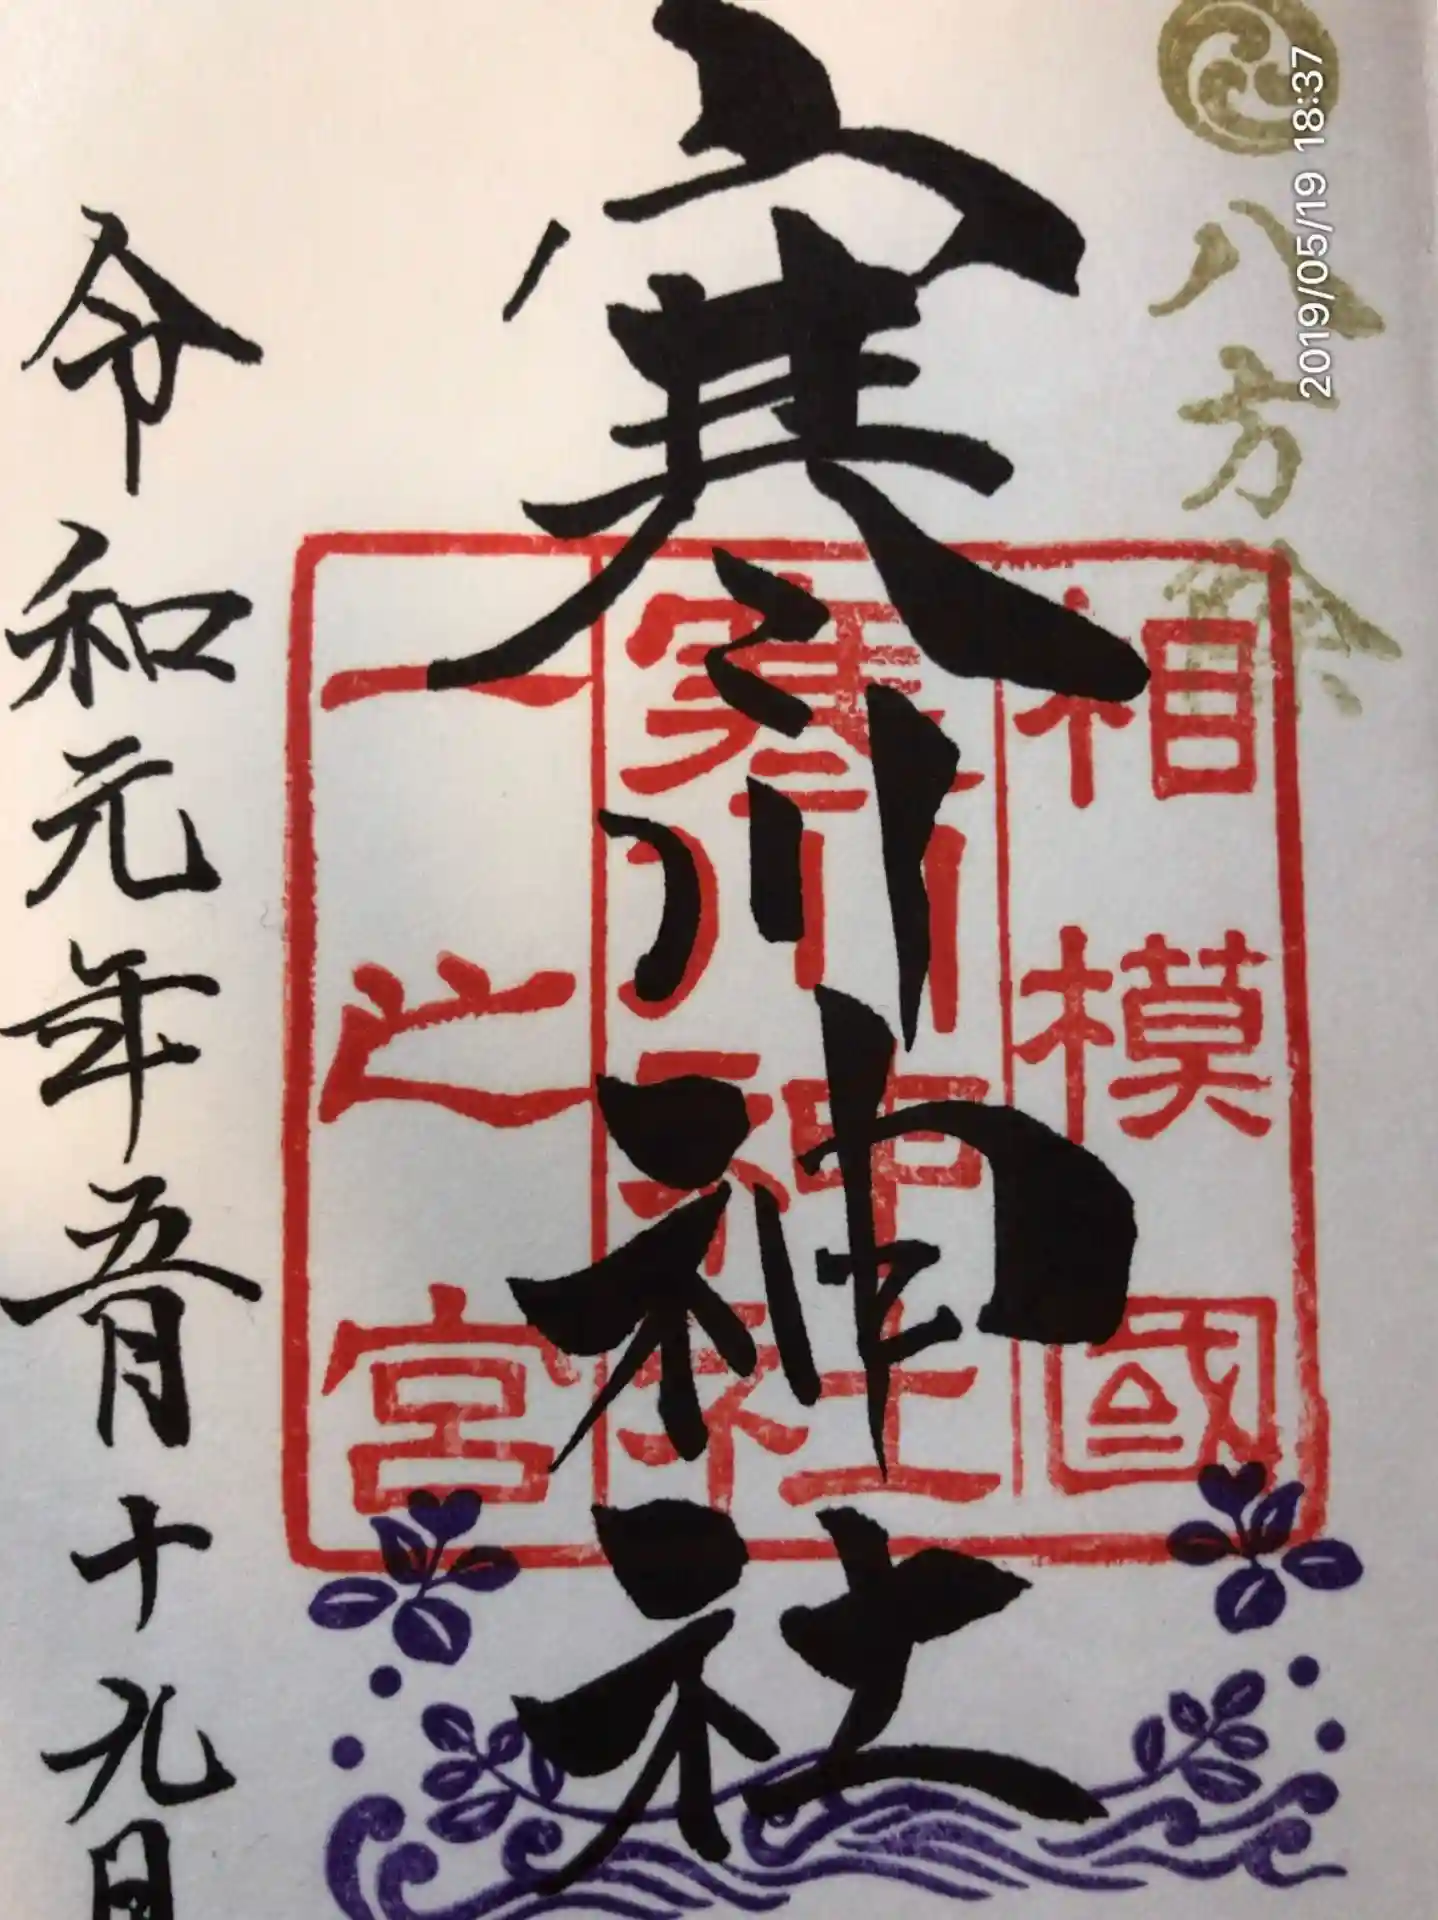 八方除
寒川神社
相模國
寒川神社
一之宮
令和元年五月十九日
2019/05/19 18:37